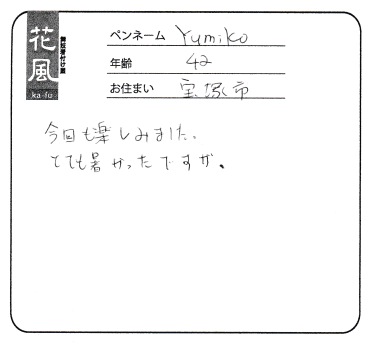 花風
ka-fu
舞妓着付け屋
ペンネーム Yumiko
年齢 42
お住まい 宝塚市
今回も楽しみました。
とても暑かったですが。